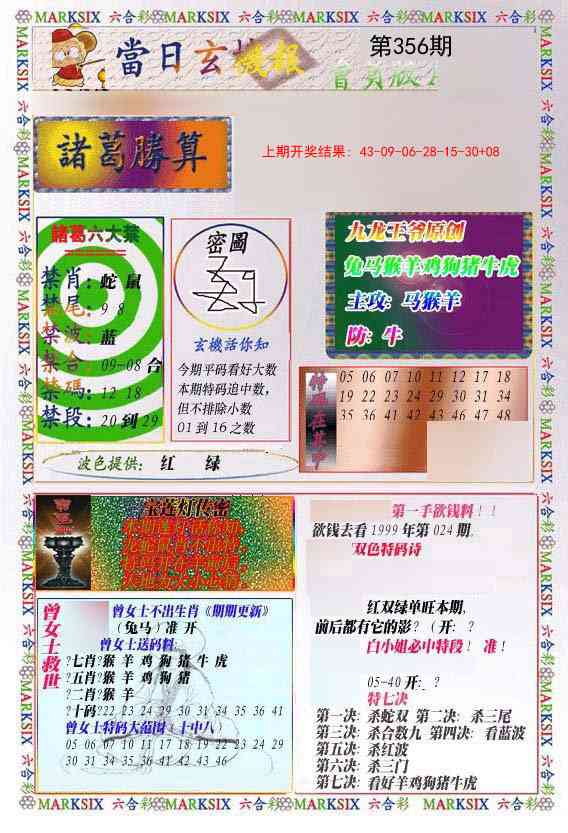 MARKSIX 六合彩 MARKSIX 六合彩 MARKSIX 六合彩 MARKSIX 六合彩
當日玄機報
第356期
諸葛勝算
上期开奖结果：43-09-06-28-15-30+08
諸葛六大禁
禁肖：蛇 鼠
禁尾：9 8
禁波：蓝
禁合：09-08 合
禁碼：12 18
禁段：20 到 29
密圖
玄機活你知
今期平码看好大数
本期特码追中数，
但不排除小数
01 到 16 之数
九龙王爷原创
兔马猴羊鸡狗猪牛虎
主攻：马猴羊
防：牛
特码在其中
05 06 07 10 11 12 17 18
19 22 23 24 29 30 31 34
35 36 41 42 43 46 47 48
波色提供： 红 绿
宝莲灯传密
曾女士救世
曾女士不出生肖《期期更新》
（兔马）准 开
曾女士送码料：
?七肖?猴 羊 鸡 狗 猪 牛 虎
?五肖?猴 羊 鸡 狗 猪
?二肖?猴 羊
?十码?22 23 24 29 30 31 34 35 36 41
曾女士特码大范围（十中八）
05 06 07 10 11 17 18 19 22 23 24 29
30 31 34 35 36 41 42 43 46
第一手欲钱料！！
欲钱去看 1999 年第 024 期。
双色特码诗
红双绿单旺本期，
前后都有它的影?（开：?
白小姐必中特段！ 准！
05-40 开:。?
特七决
第一决：杀蛇双 第二决：杀三尾
第三决：杀合数九 第四决：看蓝波
第五决：杀红波
第六决：杀三门
第七决：看好羊鸡狗猪牛虎
MARKSIX 六合彩 MARKSIX 六合彩 MARKSIX 六合彩 MARKSIX 六合彩